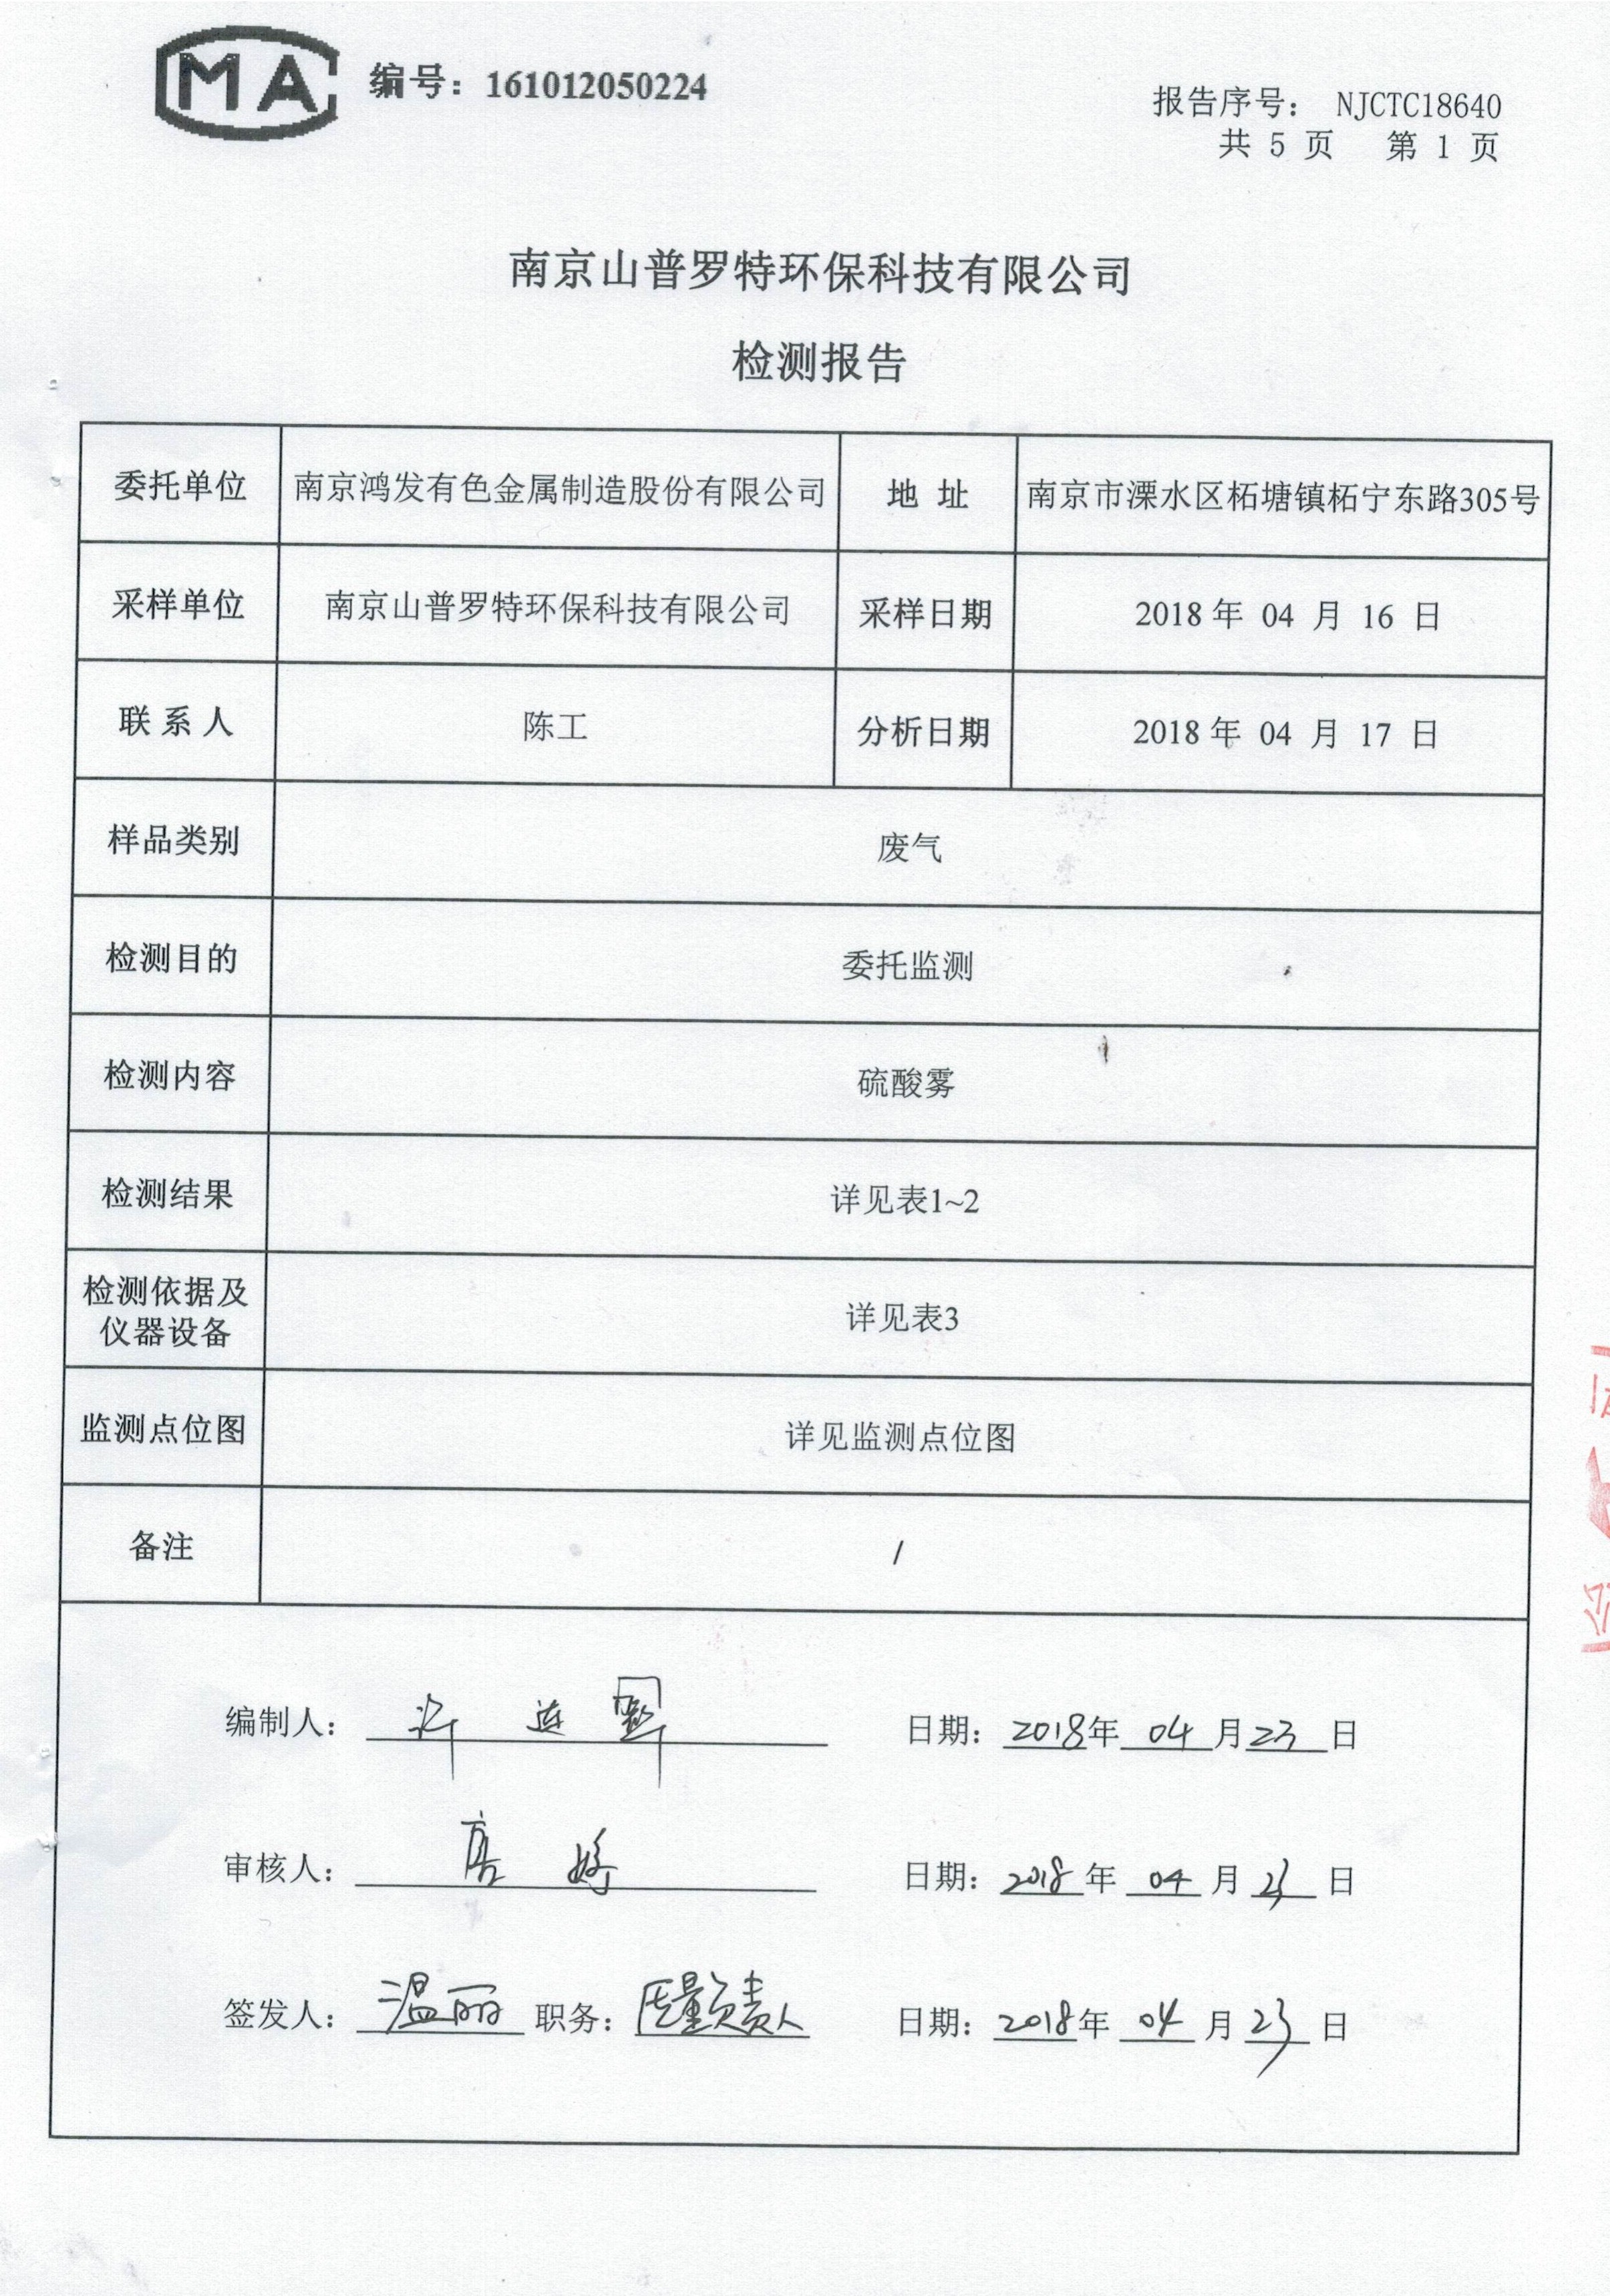 MA 编号：161012050224
报告序号： NJCTC18640
共 5 页 第 1 页
南京山普罗特环保科技有限公司
检测报告
委托单位 南京鸿发有色金属制造股份有限公司 地 址 南京市溧水区柘塘镇柘宁东路305号
采样单位 南京山普罗特环保科技有限公司 采样日期 2018 年 04 月 16 日
联 系 人 陈工 分析日期 2018 年 04 月 17 日
样品类别 废气
检测目的 委托监测
检测内容 硫酸雾
检测结果 详见表1~2
检测依据及
仪器设备 详见表3
监测点位图 详见监测点位图
备注 /
编制人： 日期：2018年 04 月 23 日
审核人： 日期：2018 年 04 月 23 日
签发人：温丽 职务：质量负责人 日期：2018年 04 月 23 日